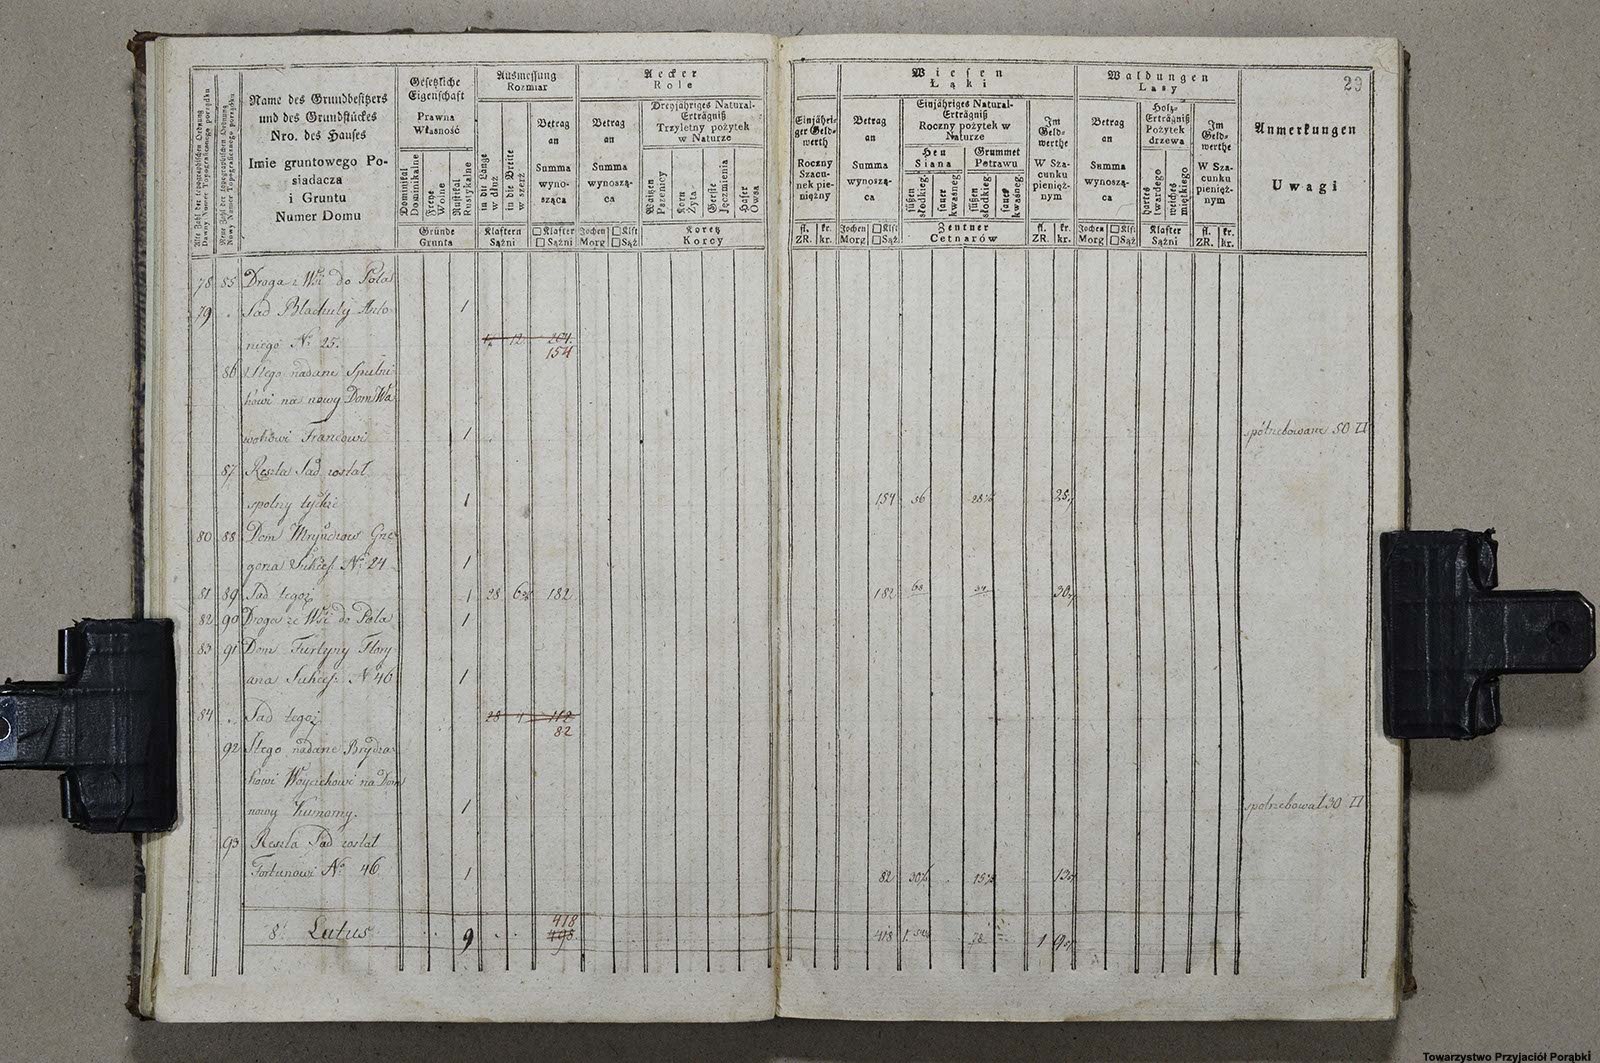 29
Alte Zahl der topographischen Ordnung
Dawny Numer Topograficznego porządku
Neue Zahl der topographischen Ordnung
Nowy Numer Topograficznego porządku
Name des Grundbesitzers
und des Grundstückes
Nro. des Hauses
Imie gruntowego Po-
siadacza
i Gruntu
Numer Domu
Gesetzliche
Eigenschaft
Prawna
Własność
Dominikal
Dominikalne
Freye
Wolne
Rustikal
Rustykalne
Gründe
Grunta
Ausmessung
Rozmiar
in die Länge
w dłuż
in die Breite
w szerż
Klaftern
Sążni
Betrag
an
Summa
wyno-
sząca
□ Klafter
□ Sążni
Aecker
Role
Betrag
an
Summa
wynoszą-
ca
Jochen □ Klft
Morg □ Sąż
Dreyjähriges Natural-
Erträgniß
Trzyletny pożytek
w Naturze
Waitzen
Pszenicy
Korn
Żyta
Gerste
Jęczmienia
Hafer
Owsa
Koretz
Korcy
Einjähri-
ger Geld-
werth
Roczny
Szacu-
nek pie-
niężny
fl. kr.
ZR. kr.
Wiesen
Łąki
Betrag
an
Summa
wynoszą-
ca
Jochen □ Klft
Morg □ Sąż
Einjähriges Natural-
Erträgniß
Roczny pożytek w
Naturze
Heu
Siana
Grummet
Potrawu
süßen
słodkieg.
sauer
kwasneg.
süßen
słodkieg.
sauer
kwasneg.
Zentner
Cetnarów
Im
Geld-
werthe
W Sza-
cunku
pienięż-
nym
fl. kr.
ZR. kr.
Waldungen
Lasy
Betrag
an
Summa
wynoszą-
ca
Jochen □ Klft
Morg □ Sąż
Holz-
Erträgniß
Pożytek
drzewa
hartes
twardego
weiches
miękkiego
Klafter
Sążni
Im
Geld-
werthe
W Sza-
cunku
pienięż-
nym
fl. kr.
ZR. kr.
Anmerkungen
Uwagi
78 85 Droga z Wsi do Pola
79 Sad Blachuty Anto- 1
niego No 25. 12 204.
154
86 Stego nadane
kowi na nowy Dom Wa-
Francowi 1 spotrzebowane 50 □
87 Reszta Sad został
spolny tychże 1 154 56
80 88 Dom Gre-
goria Sukces. No 24 1
81 89 Sad tegoż 1 28 182 182 68
82 90 Droga ze Wsi do Pola 1
83 91 Dom Furtyny Flory-
ana Sukces. N 46 1
84 Sad tegoż 28 4 112
82
92 Stego nadane Brydza-
kowi Woyciechowi na Dom
nowy 1 spotrzebował 30 □
93 Reszta Sad został
Fortunowi No 46 1 82
418
8. Latus 9 498. 418 78 1
Towarzystwo Przyjaciół Porąbki